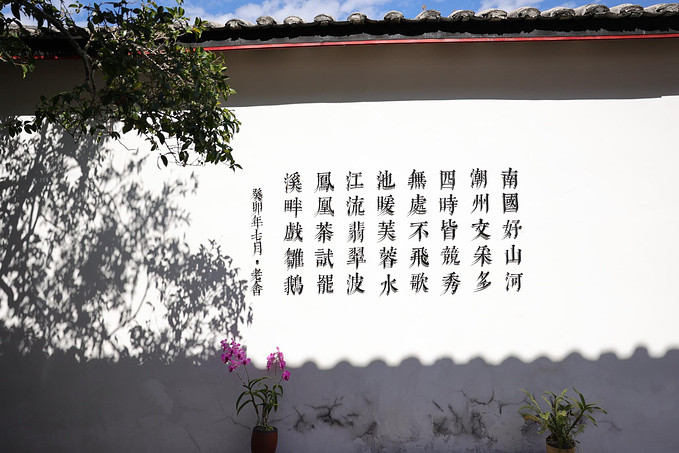 南國好山河
潮州文采多
四時皆競秀
無處不飛歌
池暖芙蓉水
江流翡翠波
鳳凰茶試罷
溪畔戲雛鵝
癸卯年七月·老舍